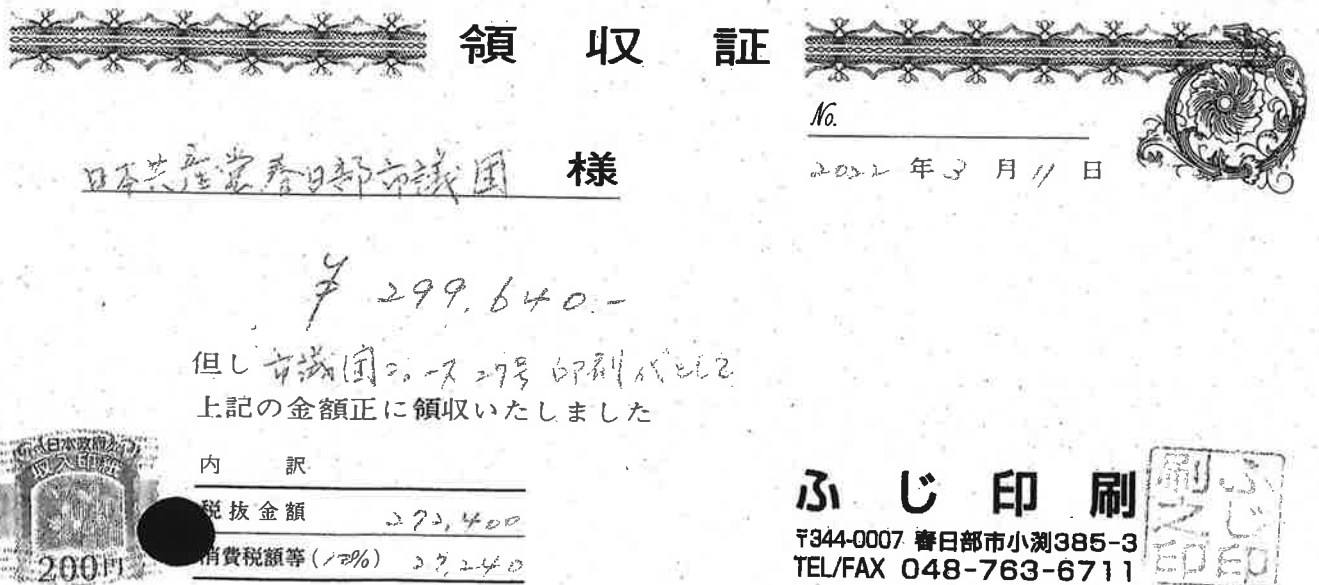 領収証
No.
2022年3月11日
日本共産党春日部市議団 様
¥299,640.-
但し 市議団ニュース27号 印刷代として
上記の金額正に領収いたしました
内訳
税抜金額 272,400
消費税額等(10%) 27,240
日本政府
収入印紙
200円
ふじ印刷
〒344-0007 春日部市小渕385-3
TEL/FAX 048-763-6711
ふじ印刷之印